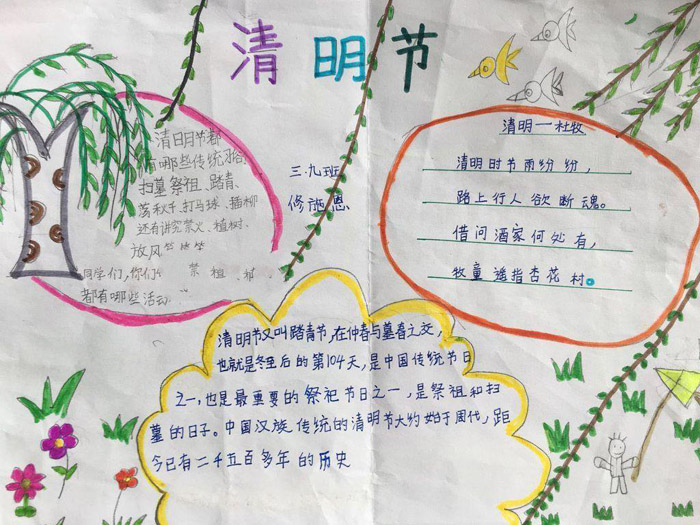 清明节
清日月节都
有哪些传统习俗
扫墓祭祖、踏青、
荡秋千、打马球、插柳
还有讲究禁火、植树、
放风筝
同学们，你们
都有哪些活动
三.九班
修施恩
清明一杜牧
清明时节雨纷纷，
路上行人欲断魂。
借问酒家何处有，
牧童遥指杏花村。
清明节又叫踏青节，在仲春与暮春之交，
也就是冬至后的第104天，是中国传统节日
之一，也是最重要的祭祀节日之一，是祭祖和扫
墓的日子。中国汉族传统的清明节大约始于周代，距
今已有二千五百多年的历史